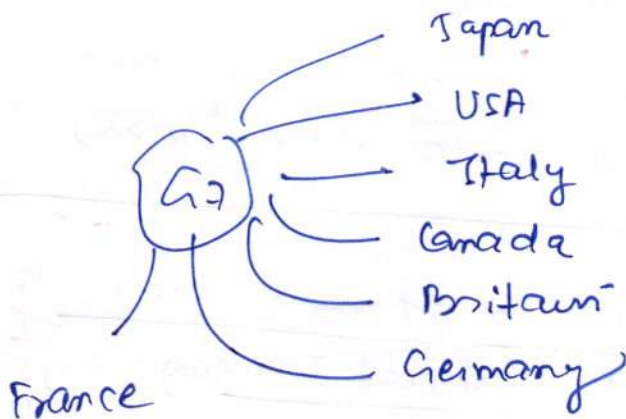 Japan
USA
Italy
G7
Canada
Britain
Germany
France